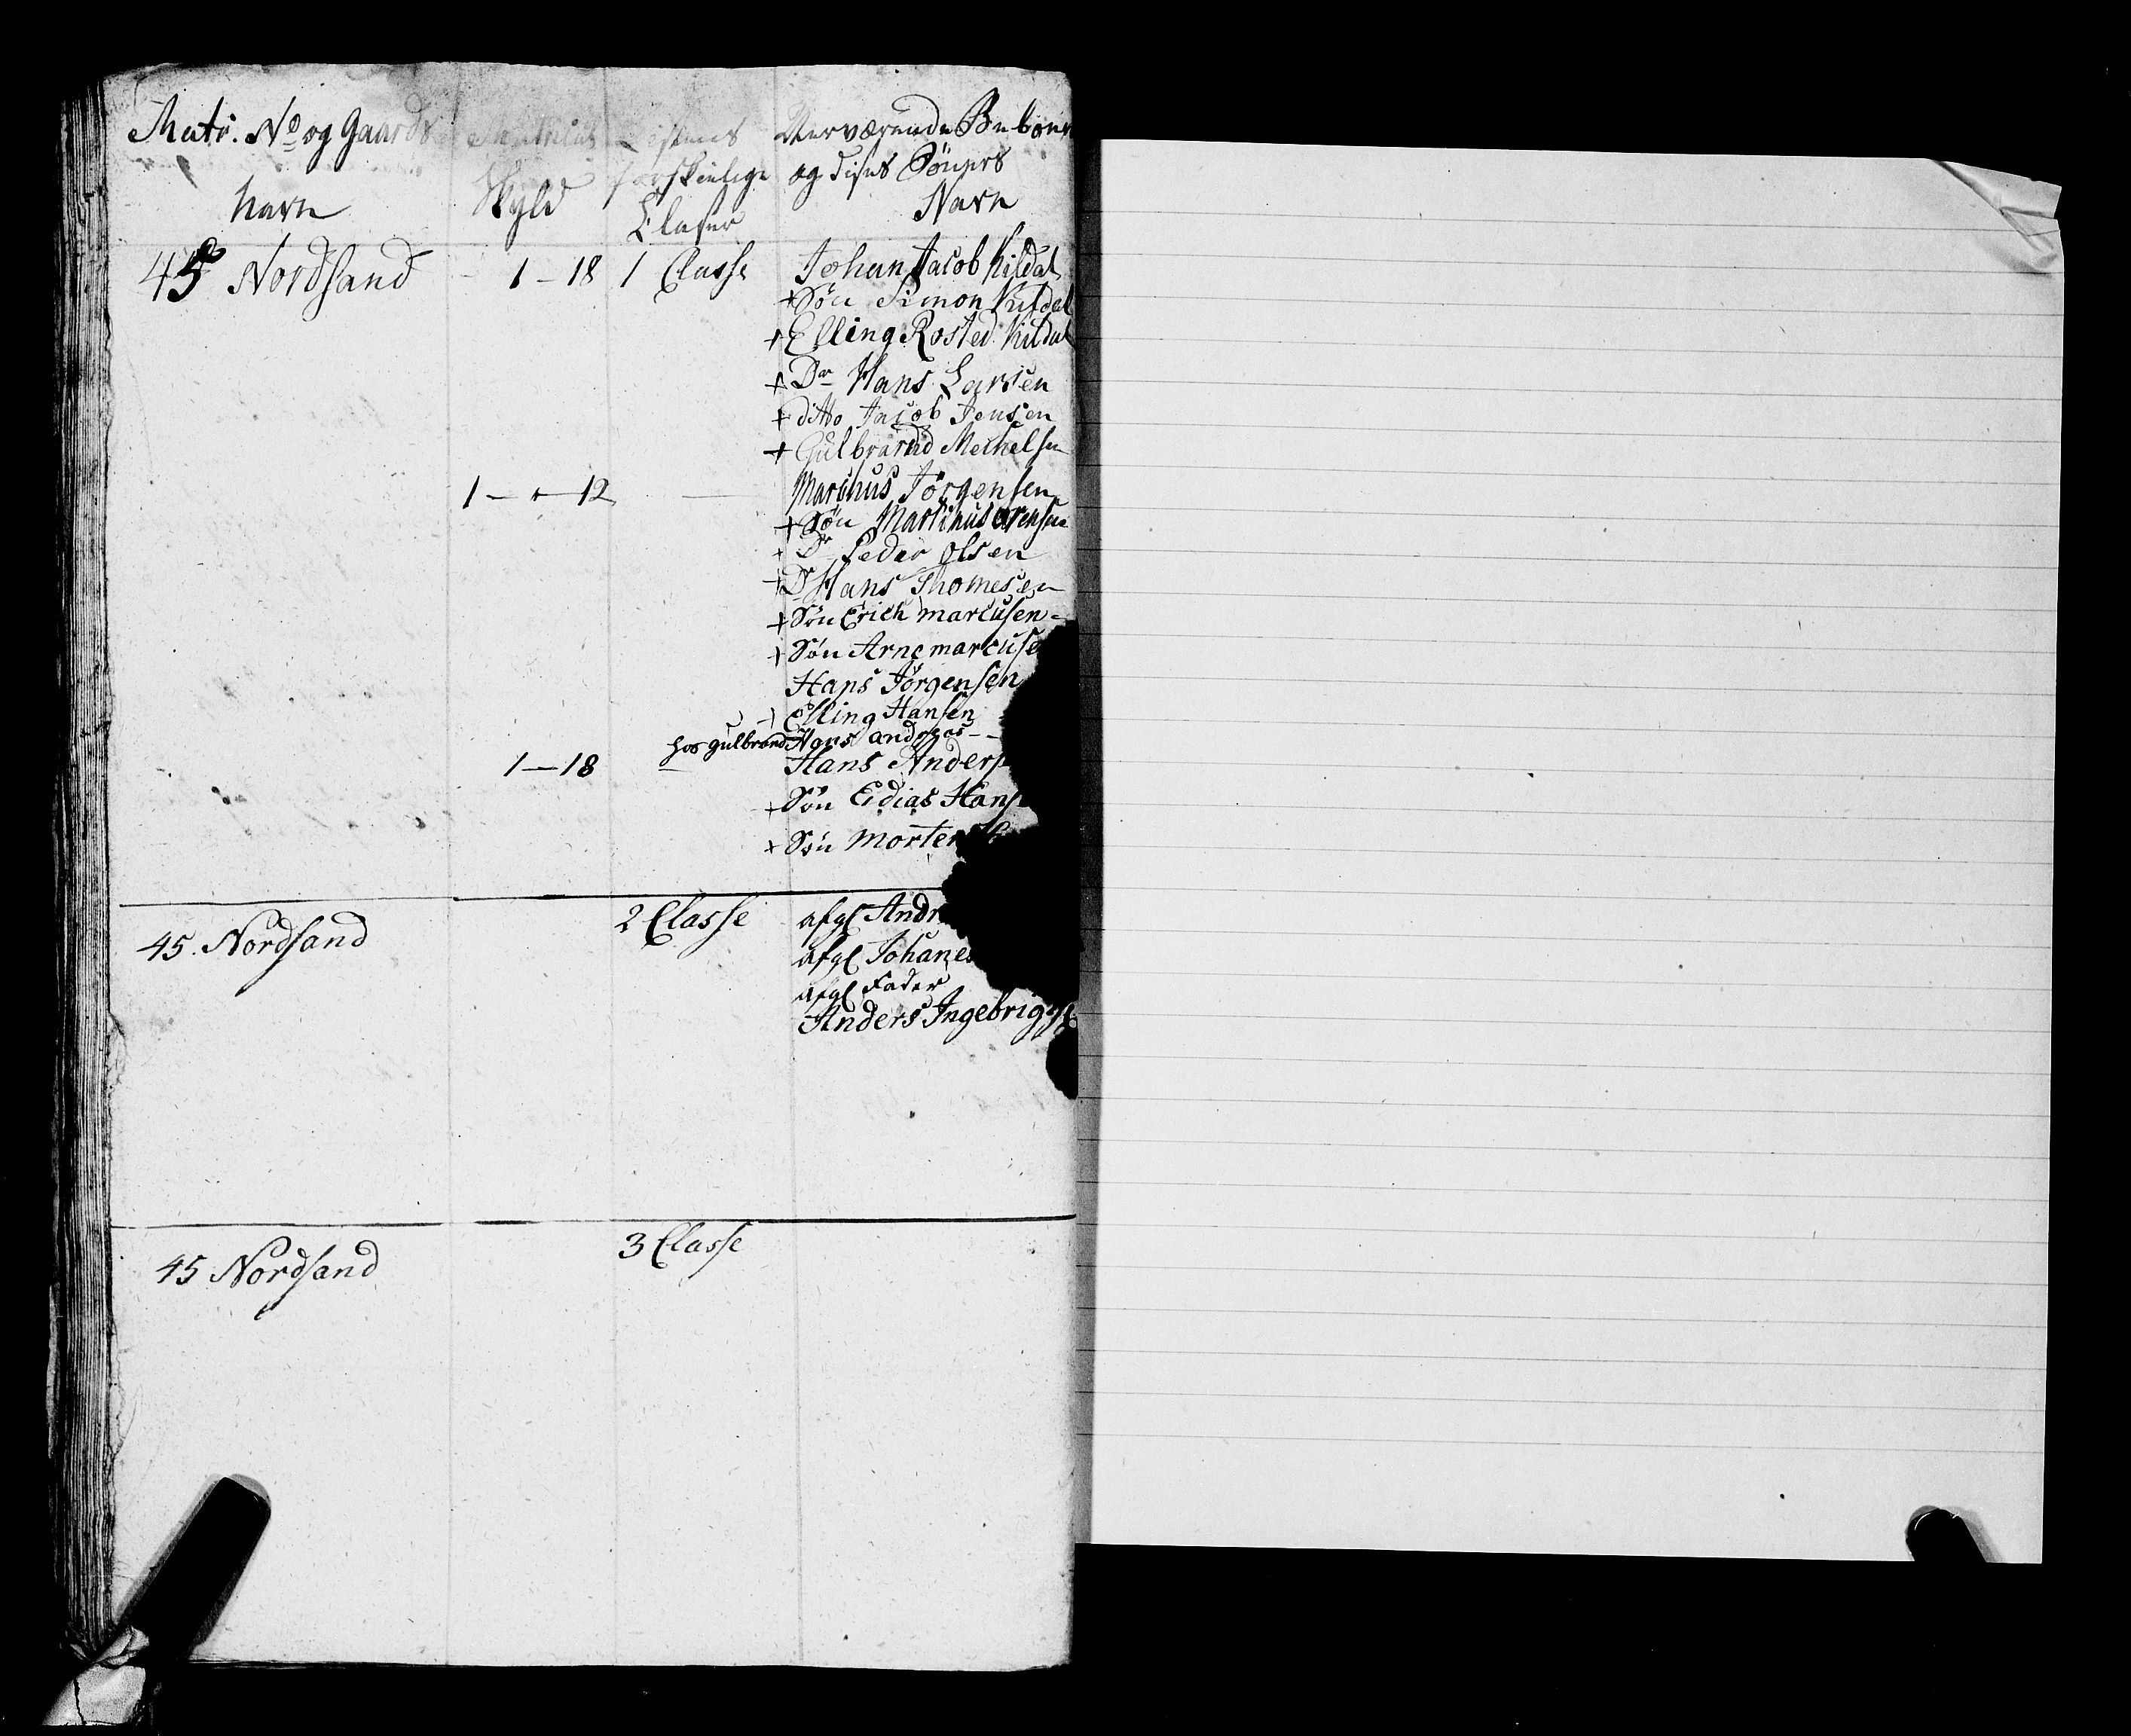 Matr. No og Gaards
Navn
Matriculs
Skyld
forskielige
Classer
Nerværende Beboer
og dises Sönners
Navn
45 Nordsand 1 - 18 1 Classe Johan Jacob Kildal
+ Søn Simon Kildal
+ Elling Rosted Kildal
+ Dr Hans Larsen
+ ditto Jacob Jensen
+ Gulbrand Meikelsen
1 - - 12 - Marchus Jörgensen
+ Søn Martinus
+ Dr Peder Olsen
+ Dr Hans Thomesen
+ Søn Erich marcusen -
+ Søn Arne marcuse
Hans Jörgensen
+ Elling Hansen
hos gulbrand Hans andreas -
1 - 18 Hans Anders
+ Søn Eidias Hans
+ Søn Morten
45. Nordsand 2 Classe afgl Andr
afgl Johanes
afgl Fader
Anders Ingebrigt
45 Nordsand 3 Classe